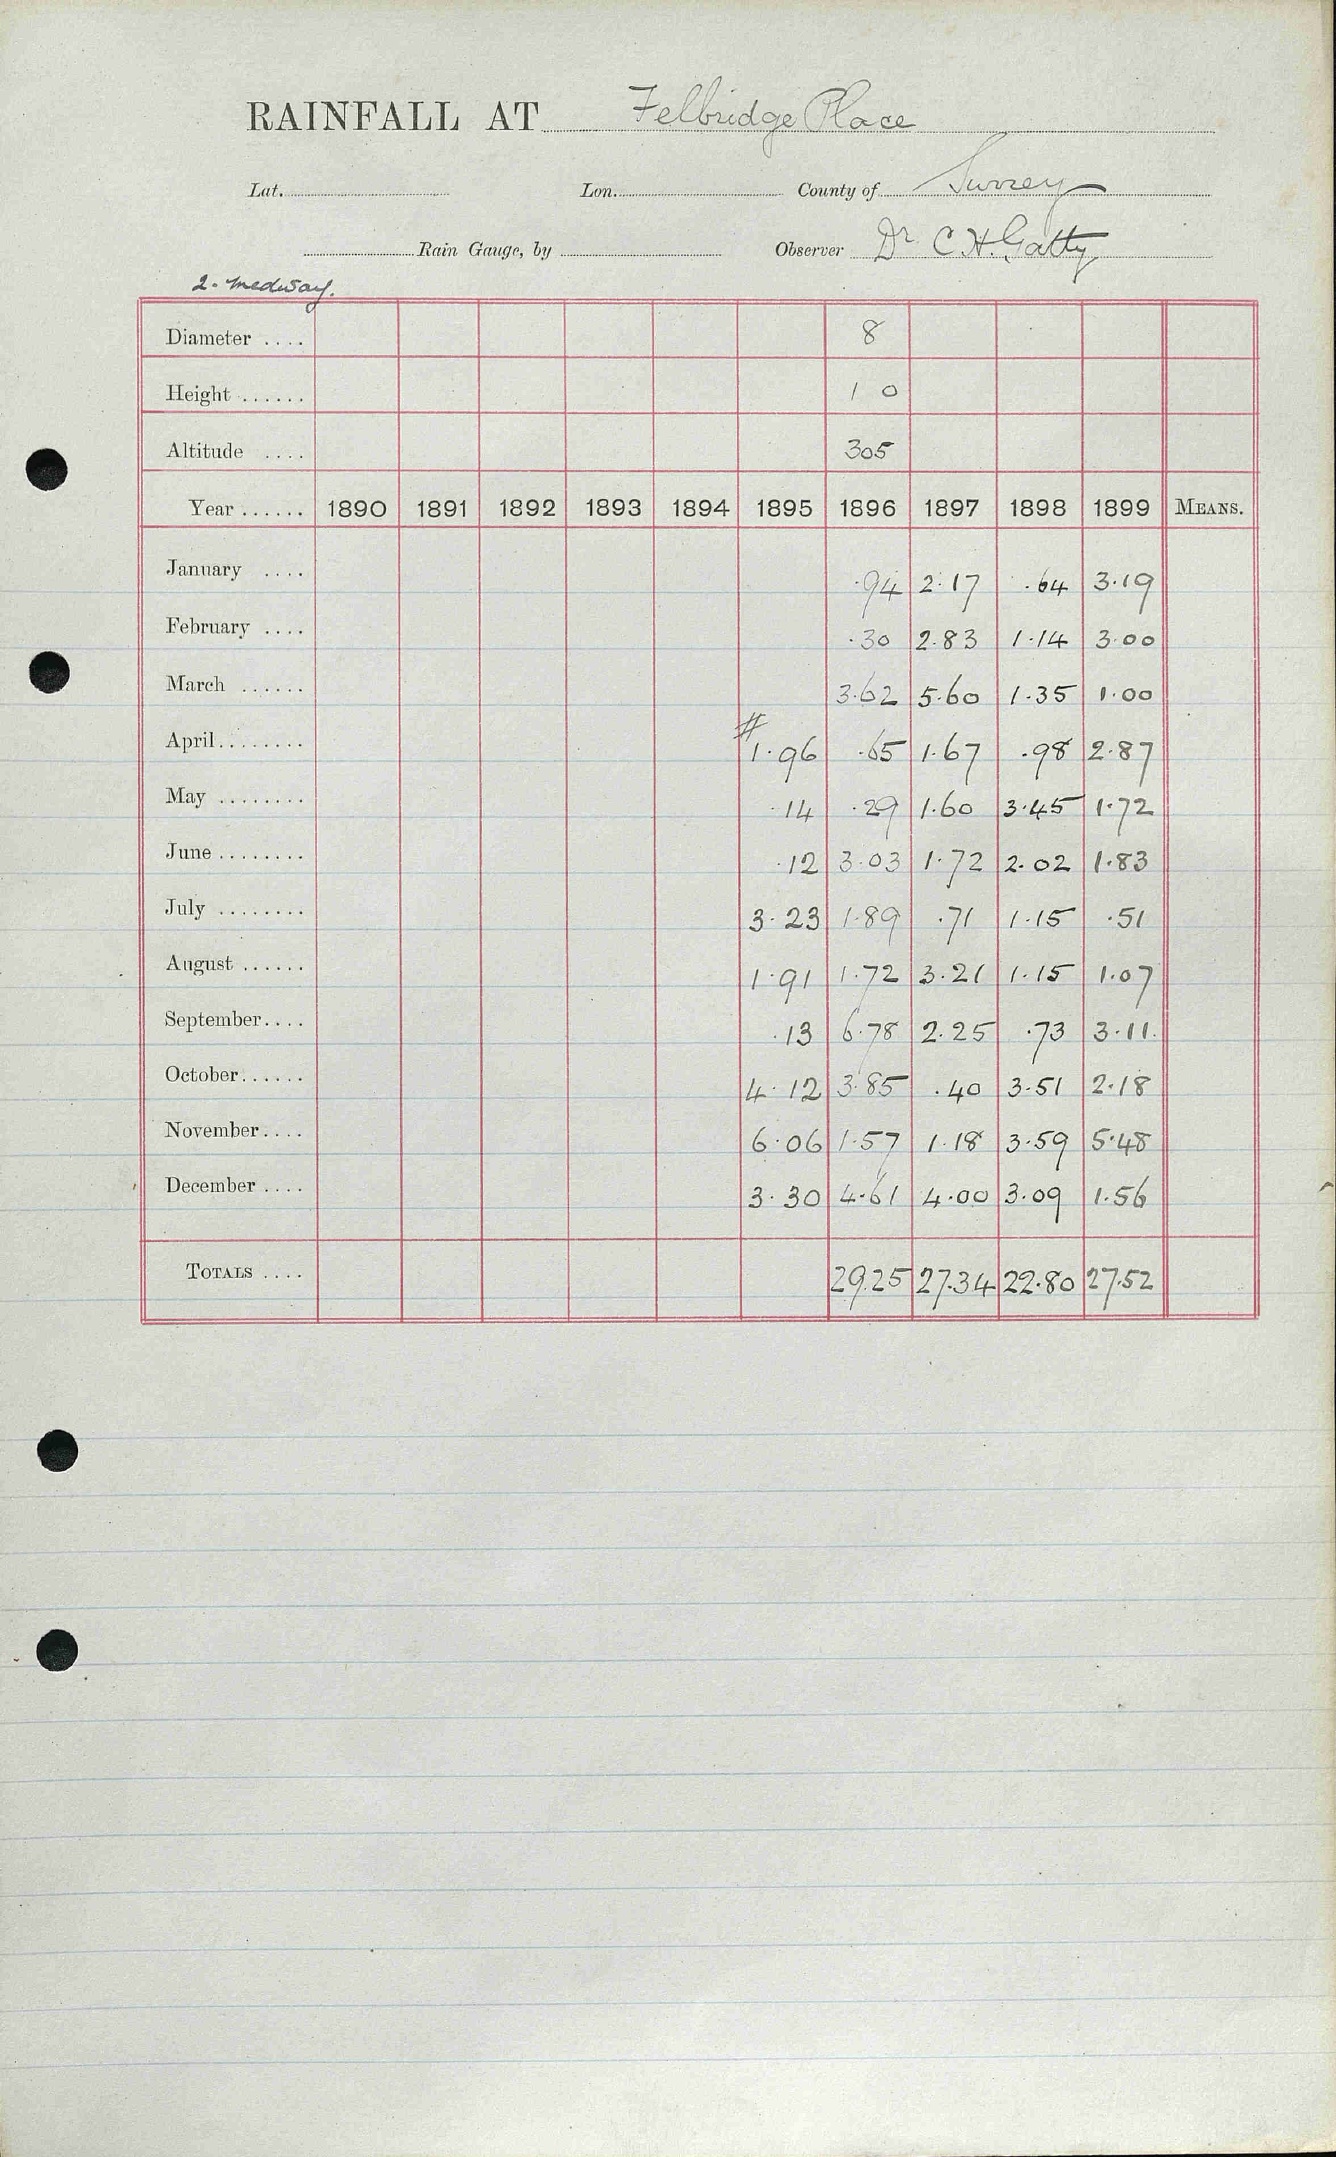 RAINFALL AT Felbridge Place
Lat. Lon. County of Surrey
Rain Gauge, by Observer Dr. C H. Gatty
2. Medway.
Diameter .... 8
Height ...... 1 0
Altitude .... 305
Year ...... 1890 1891 1892 1893 1894 1895 1896 1897 1898 1899 MEANS.
January .... .94 2.17 .64 3.19
February .... .30 2.83 1.14 3.00
March ...... 3.62 5.60 1.35 1.00
#
April ........ 1.96 .65 1.67 .98 2.87
May ........ .14 .29 1.60 3.45 1.72
June ........ .12 3.03 1.72 2.02 1.83
July ........ 3.23 1.89 .71 1.15 .51
August ...... 1.91 1.72 3.21 1.15 1.07
September .... .13 6.78 2.25 .73 3.11.
October ...... 4.12 3.85 .40 3.51 2.18
November .... 6.06 1.57 1.18 3.59 5.48
December .... 3.30 4.61 4.00 3.09 1.56
TOTALS .... 29.25 27.34 22.80 27.52